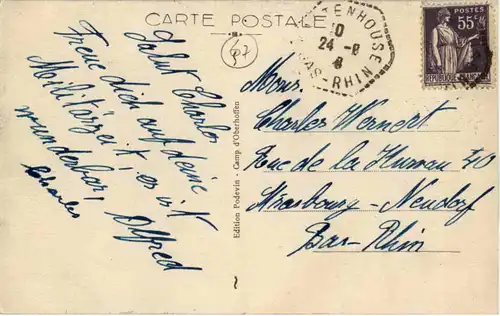 CARTE POSTALE
67
Salut Charles
Freue dich auf deine
Militärzeit es ist
wunderbar! Alfred
Charles
Edition Podevin - Camp d'Oberhoffen
KENHOUSEN
10
24-8
8
BAS-RHIN
POSTES
55c
REPUBLIQUE FRANÇAISE
Mons.
Charles Wernert
Rue de la 40
Strasbourg - Neudorf
Bas-Rhin